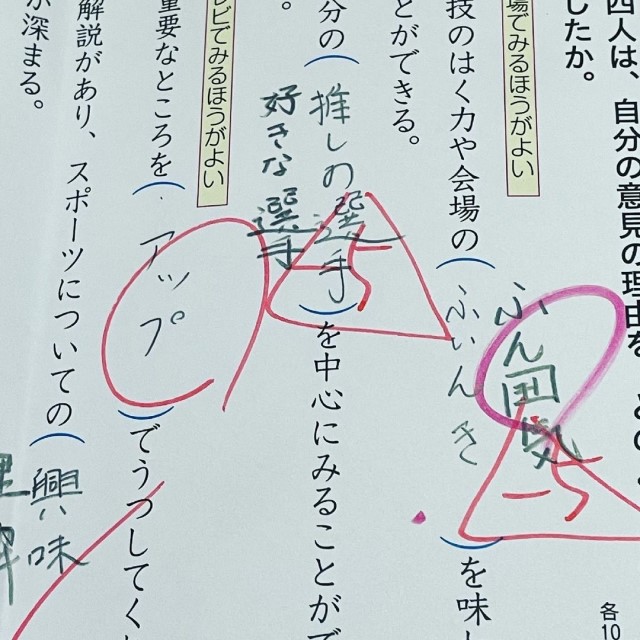 四人は、自分の意見の理由を
したか。
各10
場でみるほうがよい
ふん囲気
技のはく力や会場の（ふいんき）を味
とができる。
分の（推しの選手）を中心にみることがで
好きな選手
。
-5
-5
ビでみるほうがよい
重要なところを（アップ）でうつしてく
解説があり、スポーツについての（興味
理解
が深まる。